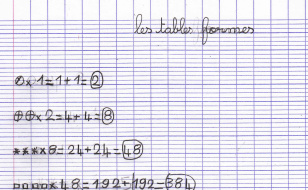 les tables formes
∅x1=1+1=2
⊕⊕x2=4+4=8
****x8=24+24=48
¤¤¤¤x48=192+192=384